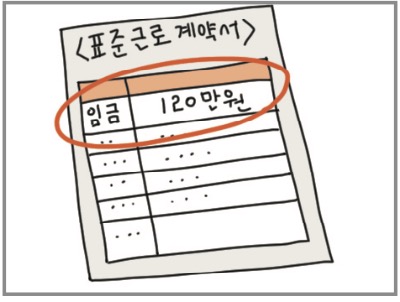 <표준근로계약서>
임금 120만원
... ...
... ...
... ...
... ...
...